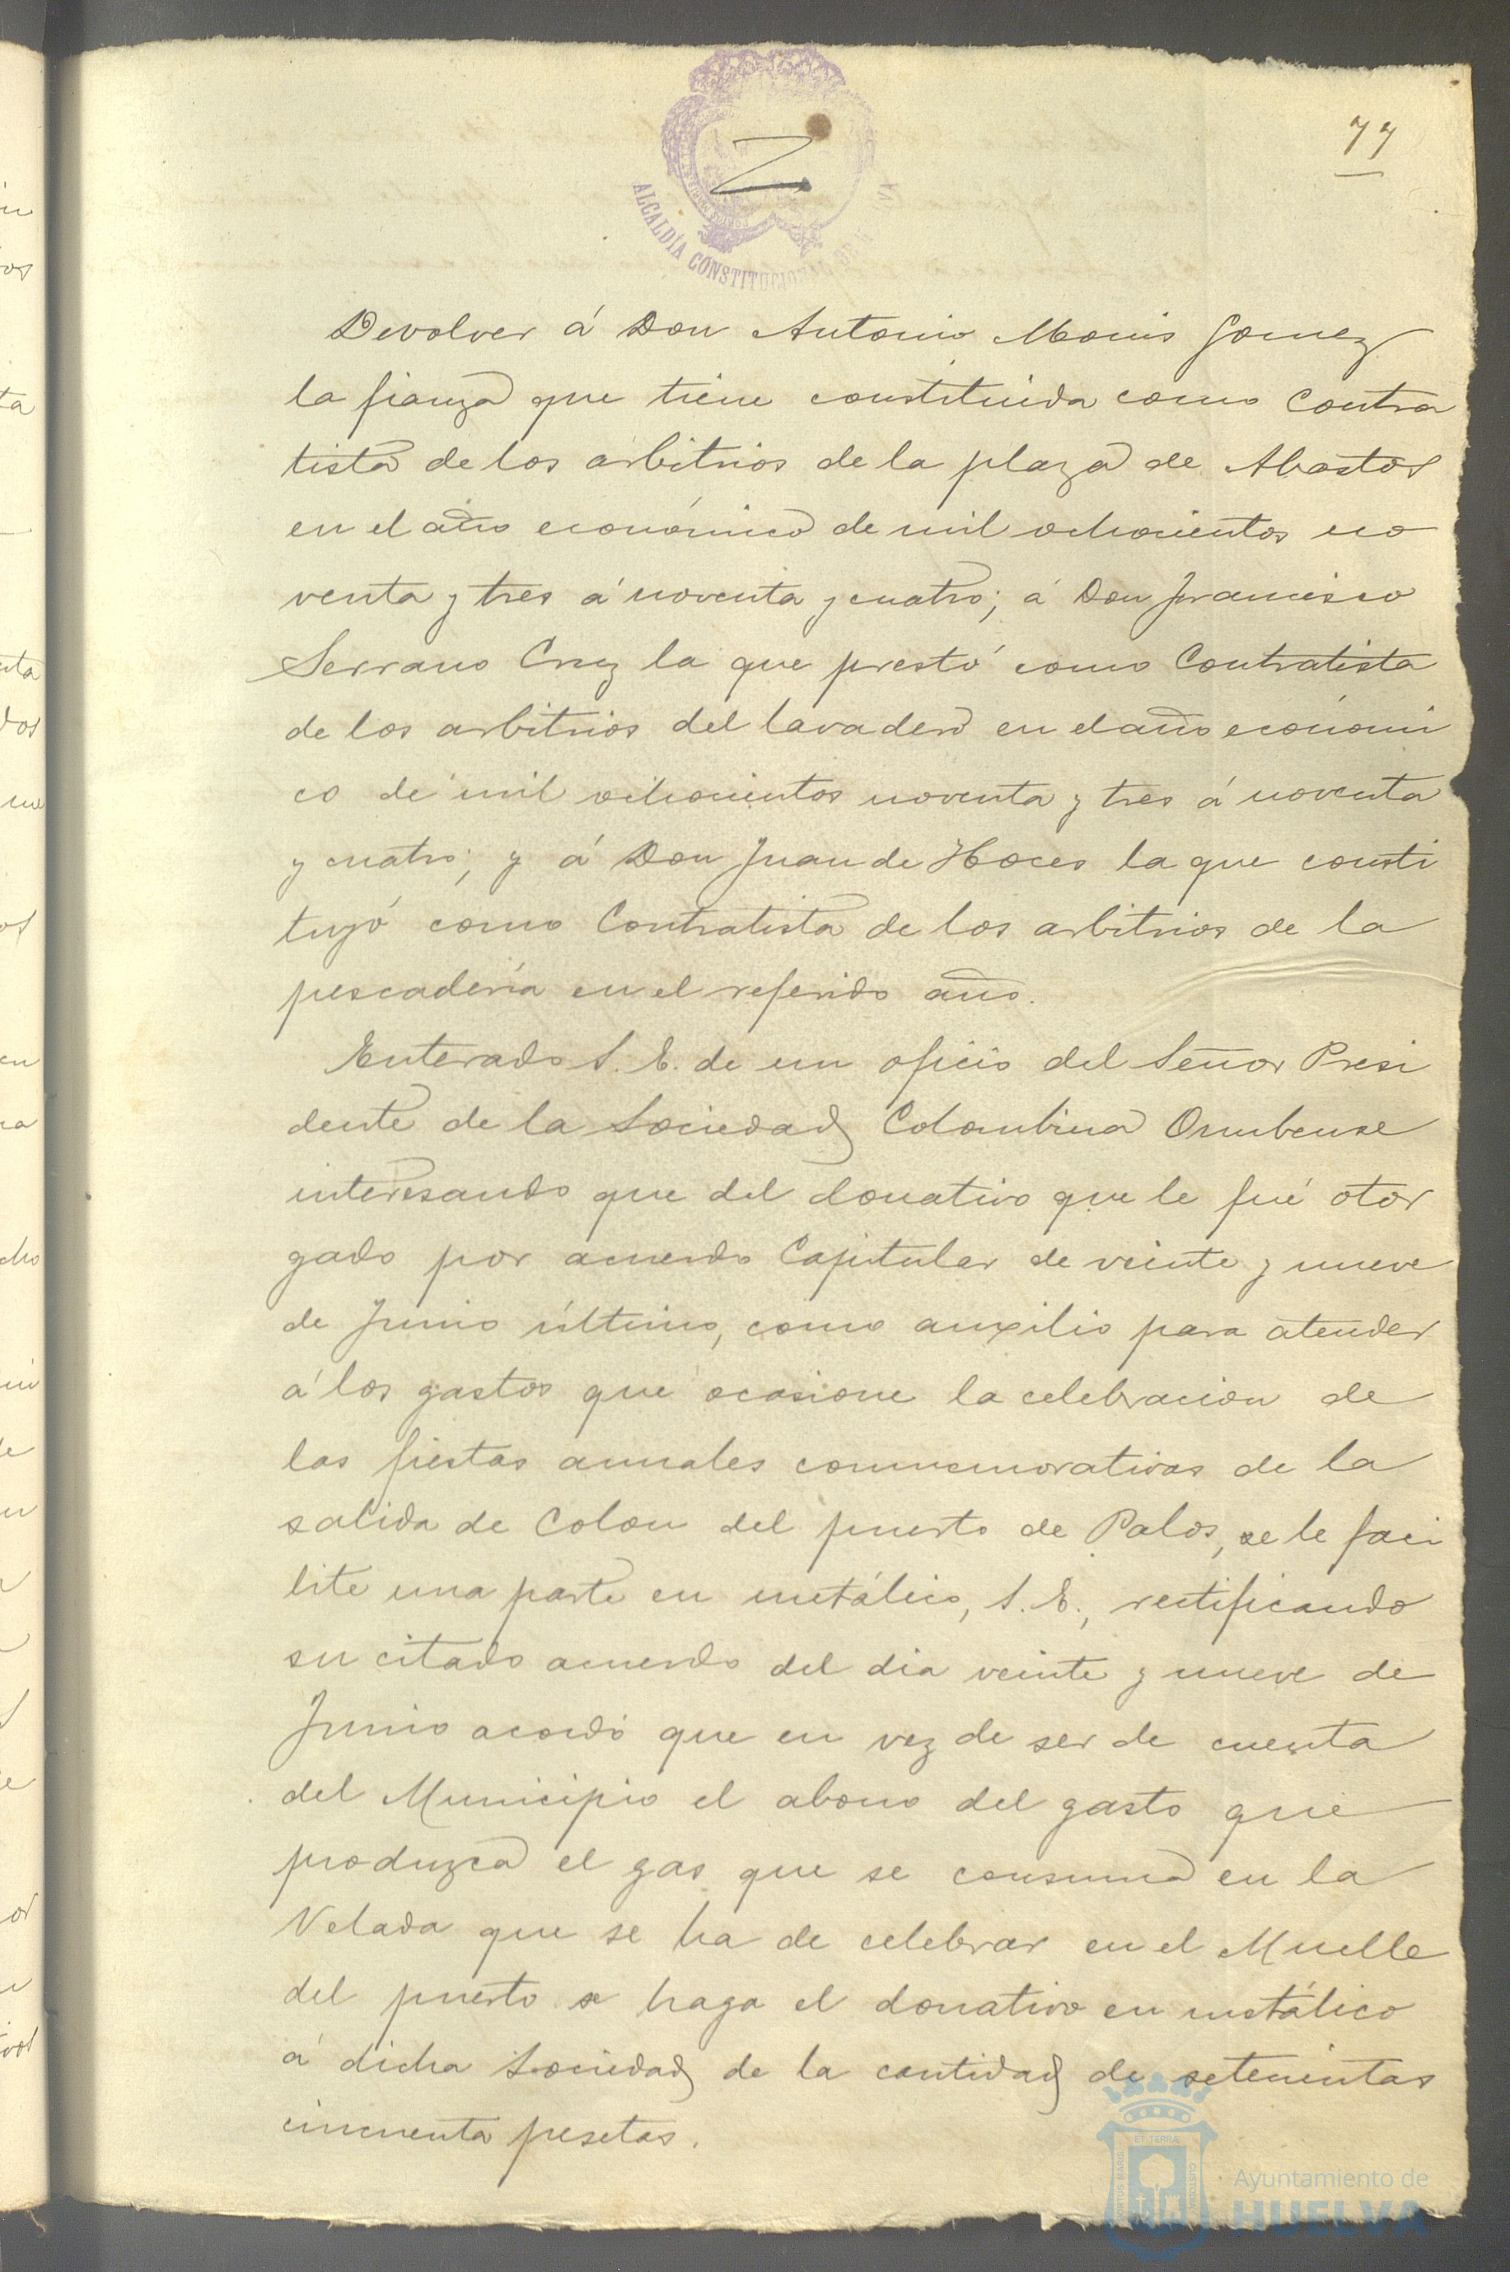 77
ALCALDÍA CONSTITUCIONAL DE HUELVA
Devolver á Don Antonio Monis Gomez
la fianza que tiene constituida como Contra
tista de los arbitrios de la plaza de Abastos
en el año económico de mil ochocientos no
venta y tres á noventa y cuatro; á Don Francisco
Serrano Cruz la que prestó como Contratista
de los arbitrios del lavadero en el año económi
co de mil ochocientos noventa y tres á noventa
y cuatro; y á Don Juan de Hoces la que consti
tuyó como Contratista de los arbitrios de la
pescadería en el referido año.
Enterado S. E. de un oficio del Señor Presi
dente de la Sociedad Colombina Onubense
interesando que del donativo que le fué otor
gado por acuerdo Capitular de veinte y nueve
de Junio último, como auxilio para atender
á los gastos que ocasione la celebracion de
las fiestas anuales conmemorativas de la
salida de Colon del puerto de Palos, se le faci
lite una parte en metálico, S. E., rectificando
su citado acuerdo del dia veinte y nueve de
Junio acordó que en vez de ser de cuenta
del Municipio el abono del gasto que
produzca el gas que se consuma en la
Velada que se ha de celebrar en el Muelle
del puerto se haga el donativo en metálico
á dicha Sociedad de la cantidad de setecientas
cincuenta pesetas.
Ayuntamiento de
HUELVA